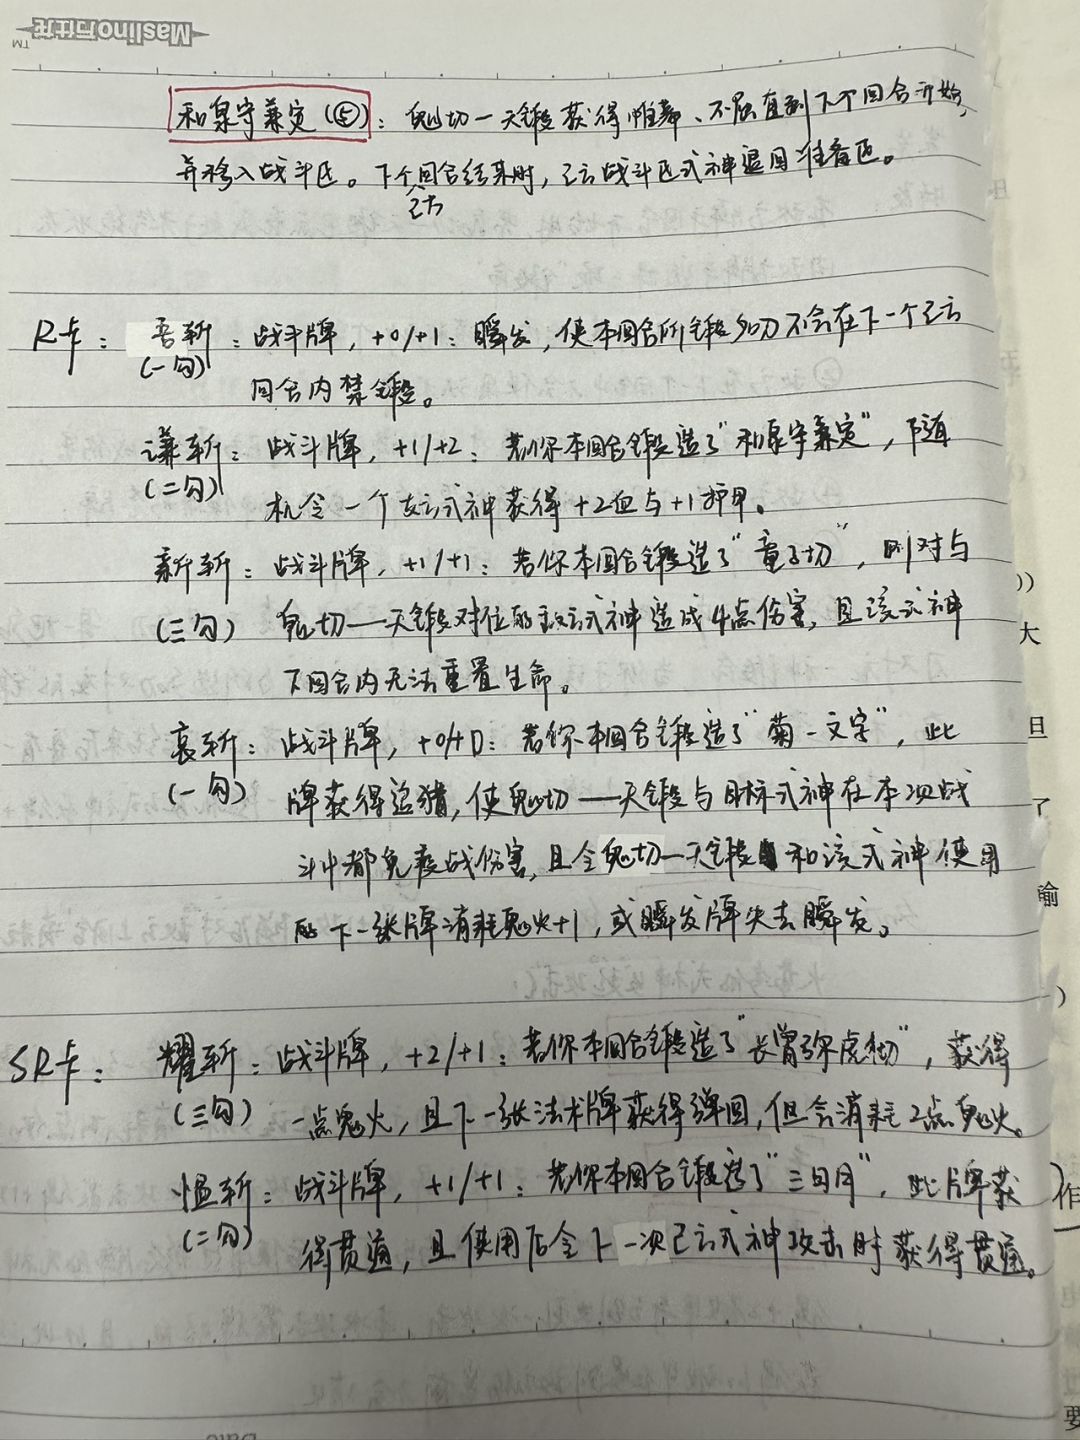 Maslino 玛仕龙 TM
和泉守兼定(⑤)：鬼切一天锻获得帷幕、不屈直到下个回合开始，
并移入战斗区。下个己方回合结束时，己方战斗区式神退回准备区。
R卡：吾斩：战斗牌，+0/+1：瞬发，使本回合所锻的刀不会在下一个己方
(一勾) 回合内禁锻。
谦斩：战斗牌，+1/+2：若你本回合锻造了“和泉守兼定”，随
(二勾) 机令一个友方式神获得+2血与+1护甲。
新斩：战斗牌，+1/+1：若你本回合锻造了“童子切”，则对与
(三勾) 鬼切一天锻对位的敌方式神造成4点伤害，且该式神
下回合内无法重置生命。
哀斩：战斗牌，+0/+0：若你本回合锻造了“菊一文字”，此
(一勾) 牌获得追猎，使鬼切一天锻与目标式神在本次战
斗中都免疫战伤害，且令鬼切一天锻和该式神使用
的下一张牌消耗鬼火+1，或瞬发牌失去瞬发。
SR卡：耀斩：战斗牌，+2/+1：若你本回合锻造了“长曾弥虎彻”，获得
(三勾) 一点鬼火，且下一张法术牌获得弹回，但会消耗2点鬼火。
愠斩：战斗牌，+1/+1：若你本回合锻造了“三日月”，此牌获
(二勾) 得贯通，且使用后令下一次己方式神攻击时获得贯通。
))
大
旦
了
输
)
作
要